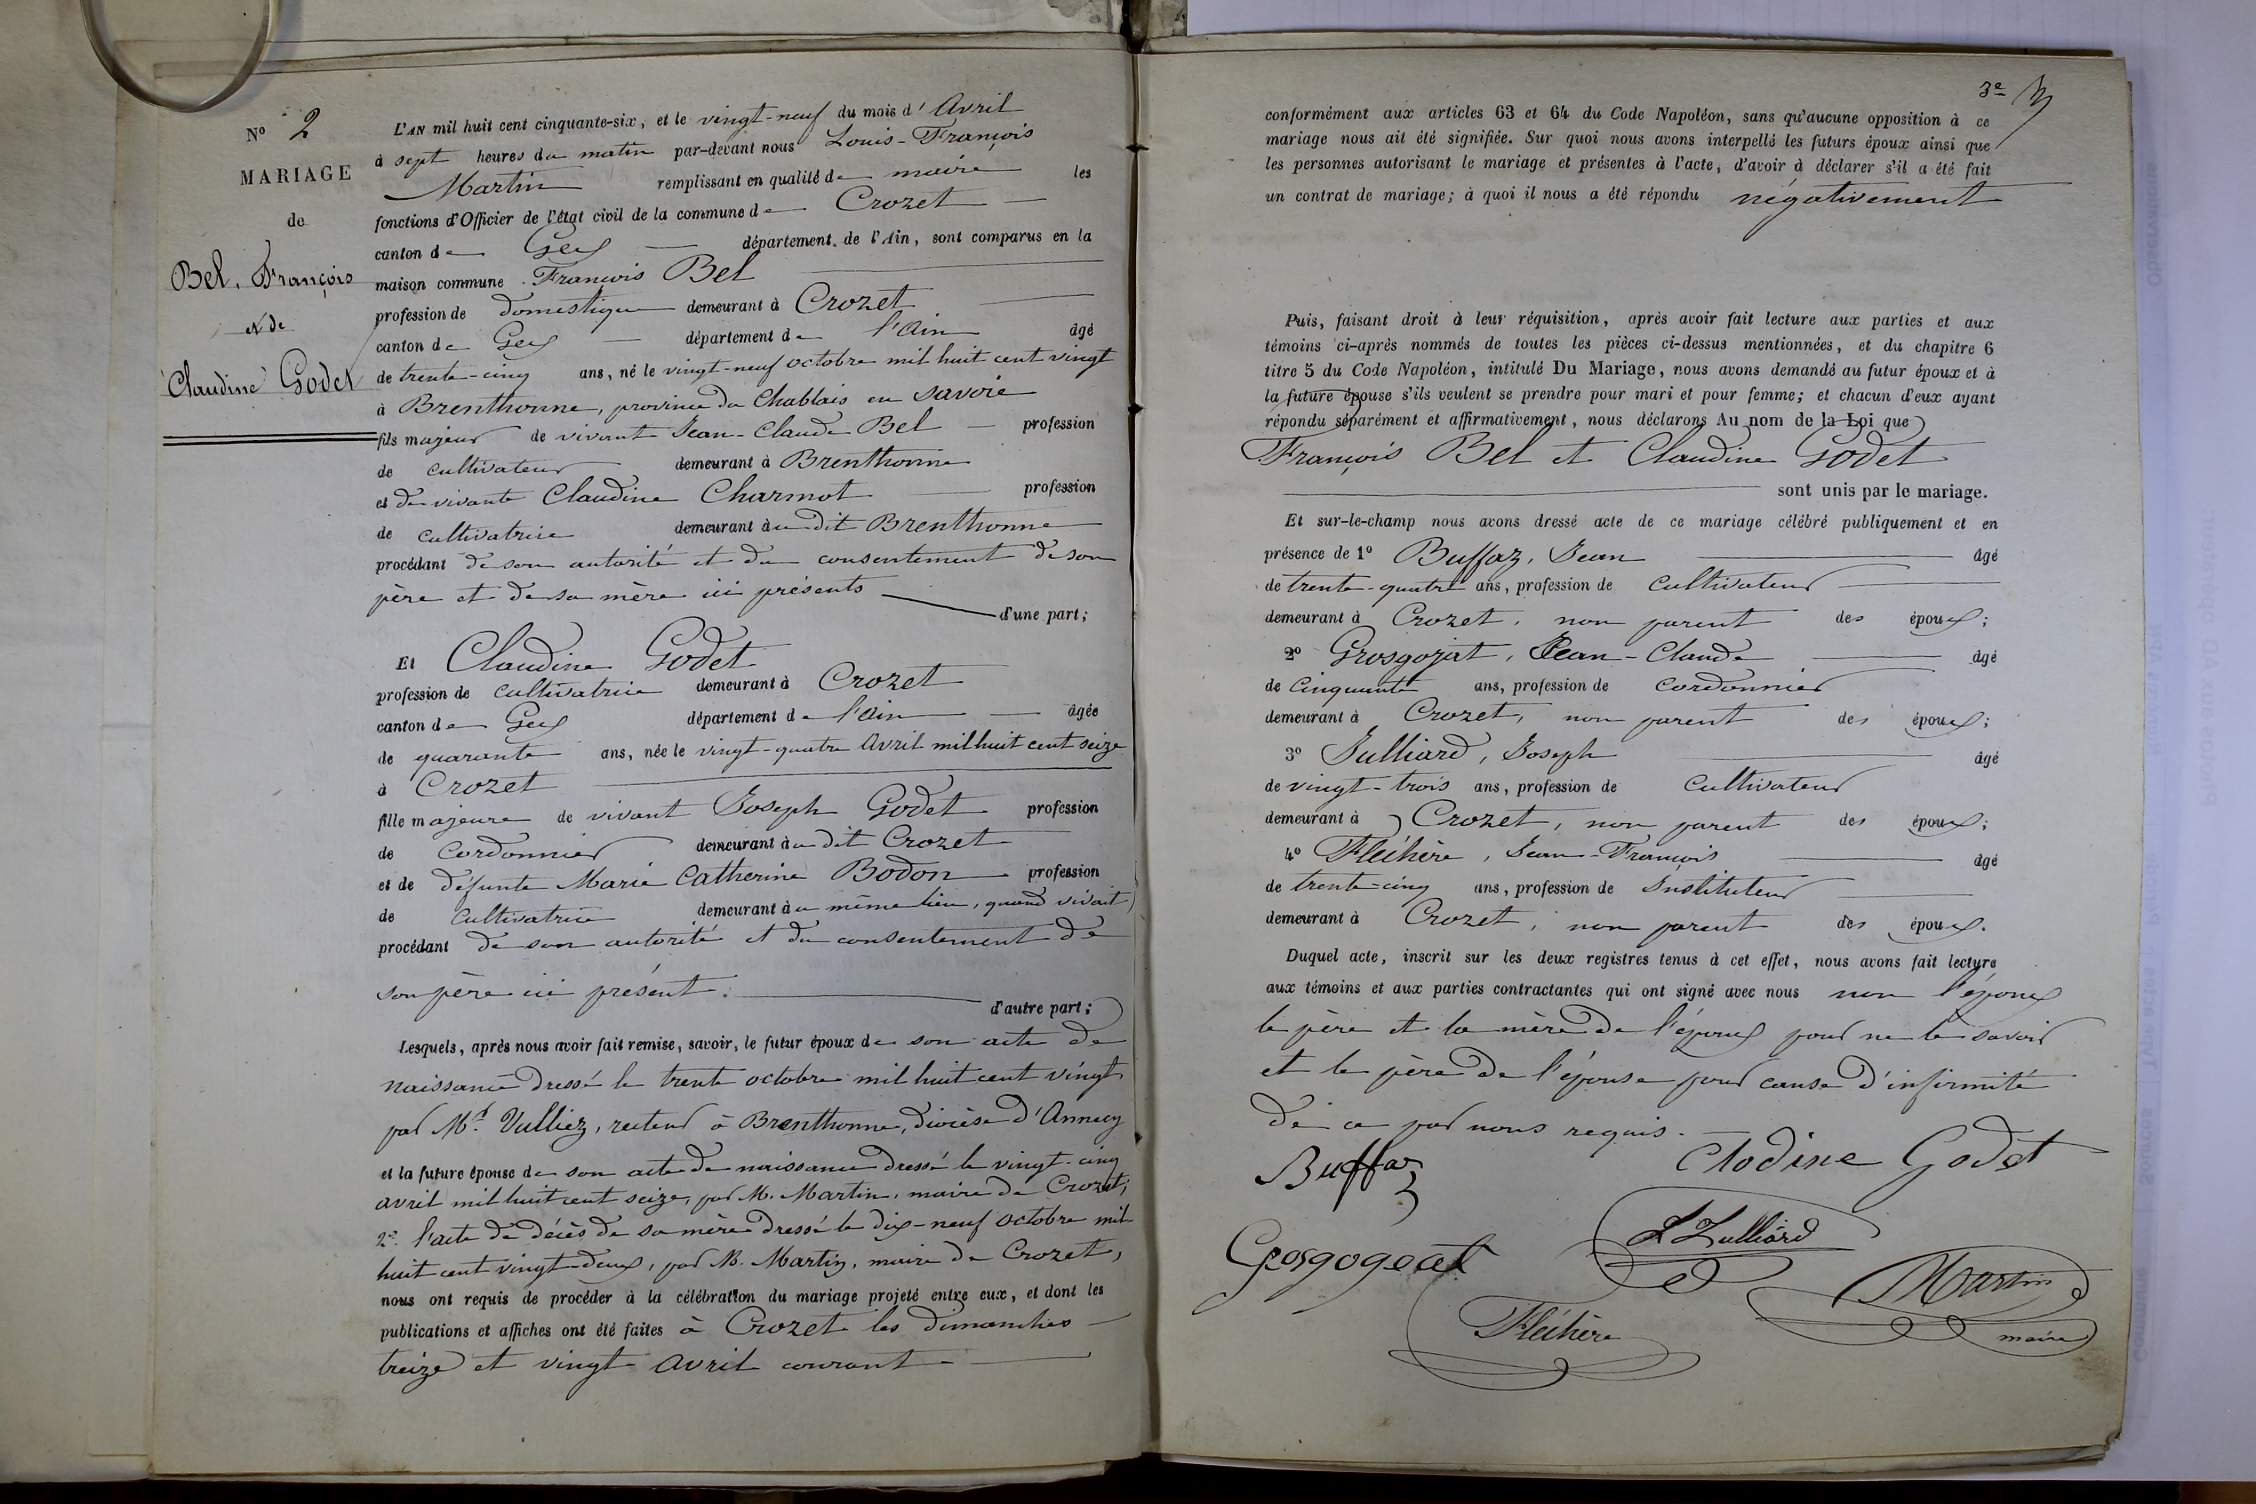 N° 2
MARIAGE
de
Bel, François
et de
Claudine Godet
L'AN mil huit cent cinquante-six, et le vingt-neuf du mois d'Avril
à sept heures du matin par-devant nous Louis-François
Martin remplissant en qualité de maire les
fonctions d'Officier de l'état civil de la commune de Crozet
canton de Gex département de l'Ain, sont comparus en la
maison commune François Bel
profession de domestique demeurant à Crozet
canton de Gex département de l'Ain âgé
de trente-cinq ans, né le vingt-neuf octobre mil huit cent vingt
à Brenthonne, province du Chablais en Savoie
fils majeur de vivant Jean-Claude Bel profession
de cultivateur demeurant à Brenthonne
et de vivante Claudine Charmot profession
de cultivatrice demeurant au dit Brenthonne
procédant de son autorité et du consentement de son
père et de sa mère ici présents
d'une part;
Et Claudine Godet
profession de cultivatrice demeurant à Crozet
canton de Gex département de l'Ain âgée
de quarante ans, née le vingt-quatre Avril mil huit cent seize
à Crozet
fille majeure de vivant Joseph Godet profession
de Cordonnier demeurant au dit Crozet
et de défunte Marie Catherine Bodon profession
de Cultivatrice demeurant au même lieu, quand vivait
procédant de son autorité et du consentement de
son père ici présent.
d'autre part;
Lesquels, après nous avoir fait remise, savoir, le futur époux de son acte de
naissance dressé le trente octobre mil huit cent vingt
par Mr. Vulliez, recteur à Brenthonne, diocèse d'Annecy
et la future épouse de son acte de naissance dressé le vingt-cinq
avril mil huit cent seize, par M. Martin, maire de Crozet;
2° l'acte de décès de sa mère dressé le dix-neuf octobre mil
huit cent vingt-deux, par M. Martin, maire de Crozet,
nous ont requis de procéder à la célébration du mariage projeté entre eux, et dont les
publications et affiches ont été faites à Crozet les dimanches
treize et vingt avril courant
3e
conformément aux articles 63 et 64 du Code Napoléon, sans qu'aucune opposition à ce
mariage nous ait été signifiée. Sur quoi nous avons interpellé les futurs époux ainsi que
les personnes autorisant le mariage et présentes à l'acte, d'avoir à déclarer s'il a été fait
un contrat de mariage; à quoi il nous a été répondu négativement
Puis, faisant droit à leur réquisition, après avoir fait lecture aux parties et aux
témoins ci-après nommés de toutes les pièces ci-dessus mentionnées, et du chapitre 6
titre 5 du Code Napoléon, intitulé Du Mariage, nous avons demandé au futur époux et à
la future épouse s'ils veulent se prendre pour mari et pour femme; et chacun d'eux ayant
répondu séparément et affirmativement, nous déclarons Au nom de la Loi que
François Bel et Claudine Godet
sont unis par le mariage.
Et sur-le-champ nous avons dressé acte de ce mariage célébré publiquement et en
présence de 1° Buffaz, Jean âgé
de trente-quatre ans, profession de cultivateur
demeurant à Crozet, non parent des époux;
2° Grosgojat, Jean-Claude âgé
de Cinquante ans, profession de cordonnier
demeurant à Crozet, non parent des époux;
3° Julliard, Joseph âgé
de vingt-trois ans, profession de Cultivateur
demeurant à Crozet, non parent des époux;
4° Fléchère, Jean-François âgé
de trente-cinq ans, profession de Instituteur
demeurant à Crozet, non parent des époux.
Duquel acte, inscrit sur les deux registres tenus à cet effet, nous avons fait lecture
aux témoins et aux parties contractantes qui ont signé avec nous non l'époux
le père et la mère de l'époux pour ne le savoir
et le père de l'épouse pour cause d'infirmité
de ce par nous requis.
Buffaz
Clodine Godet
J Julliard
Grosgogeat
Martin
maire
Fléchère